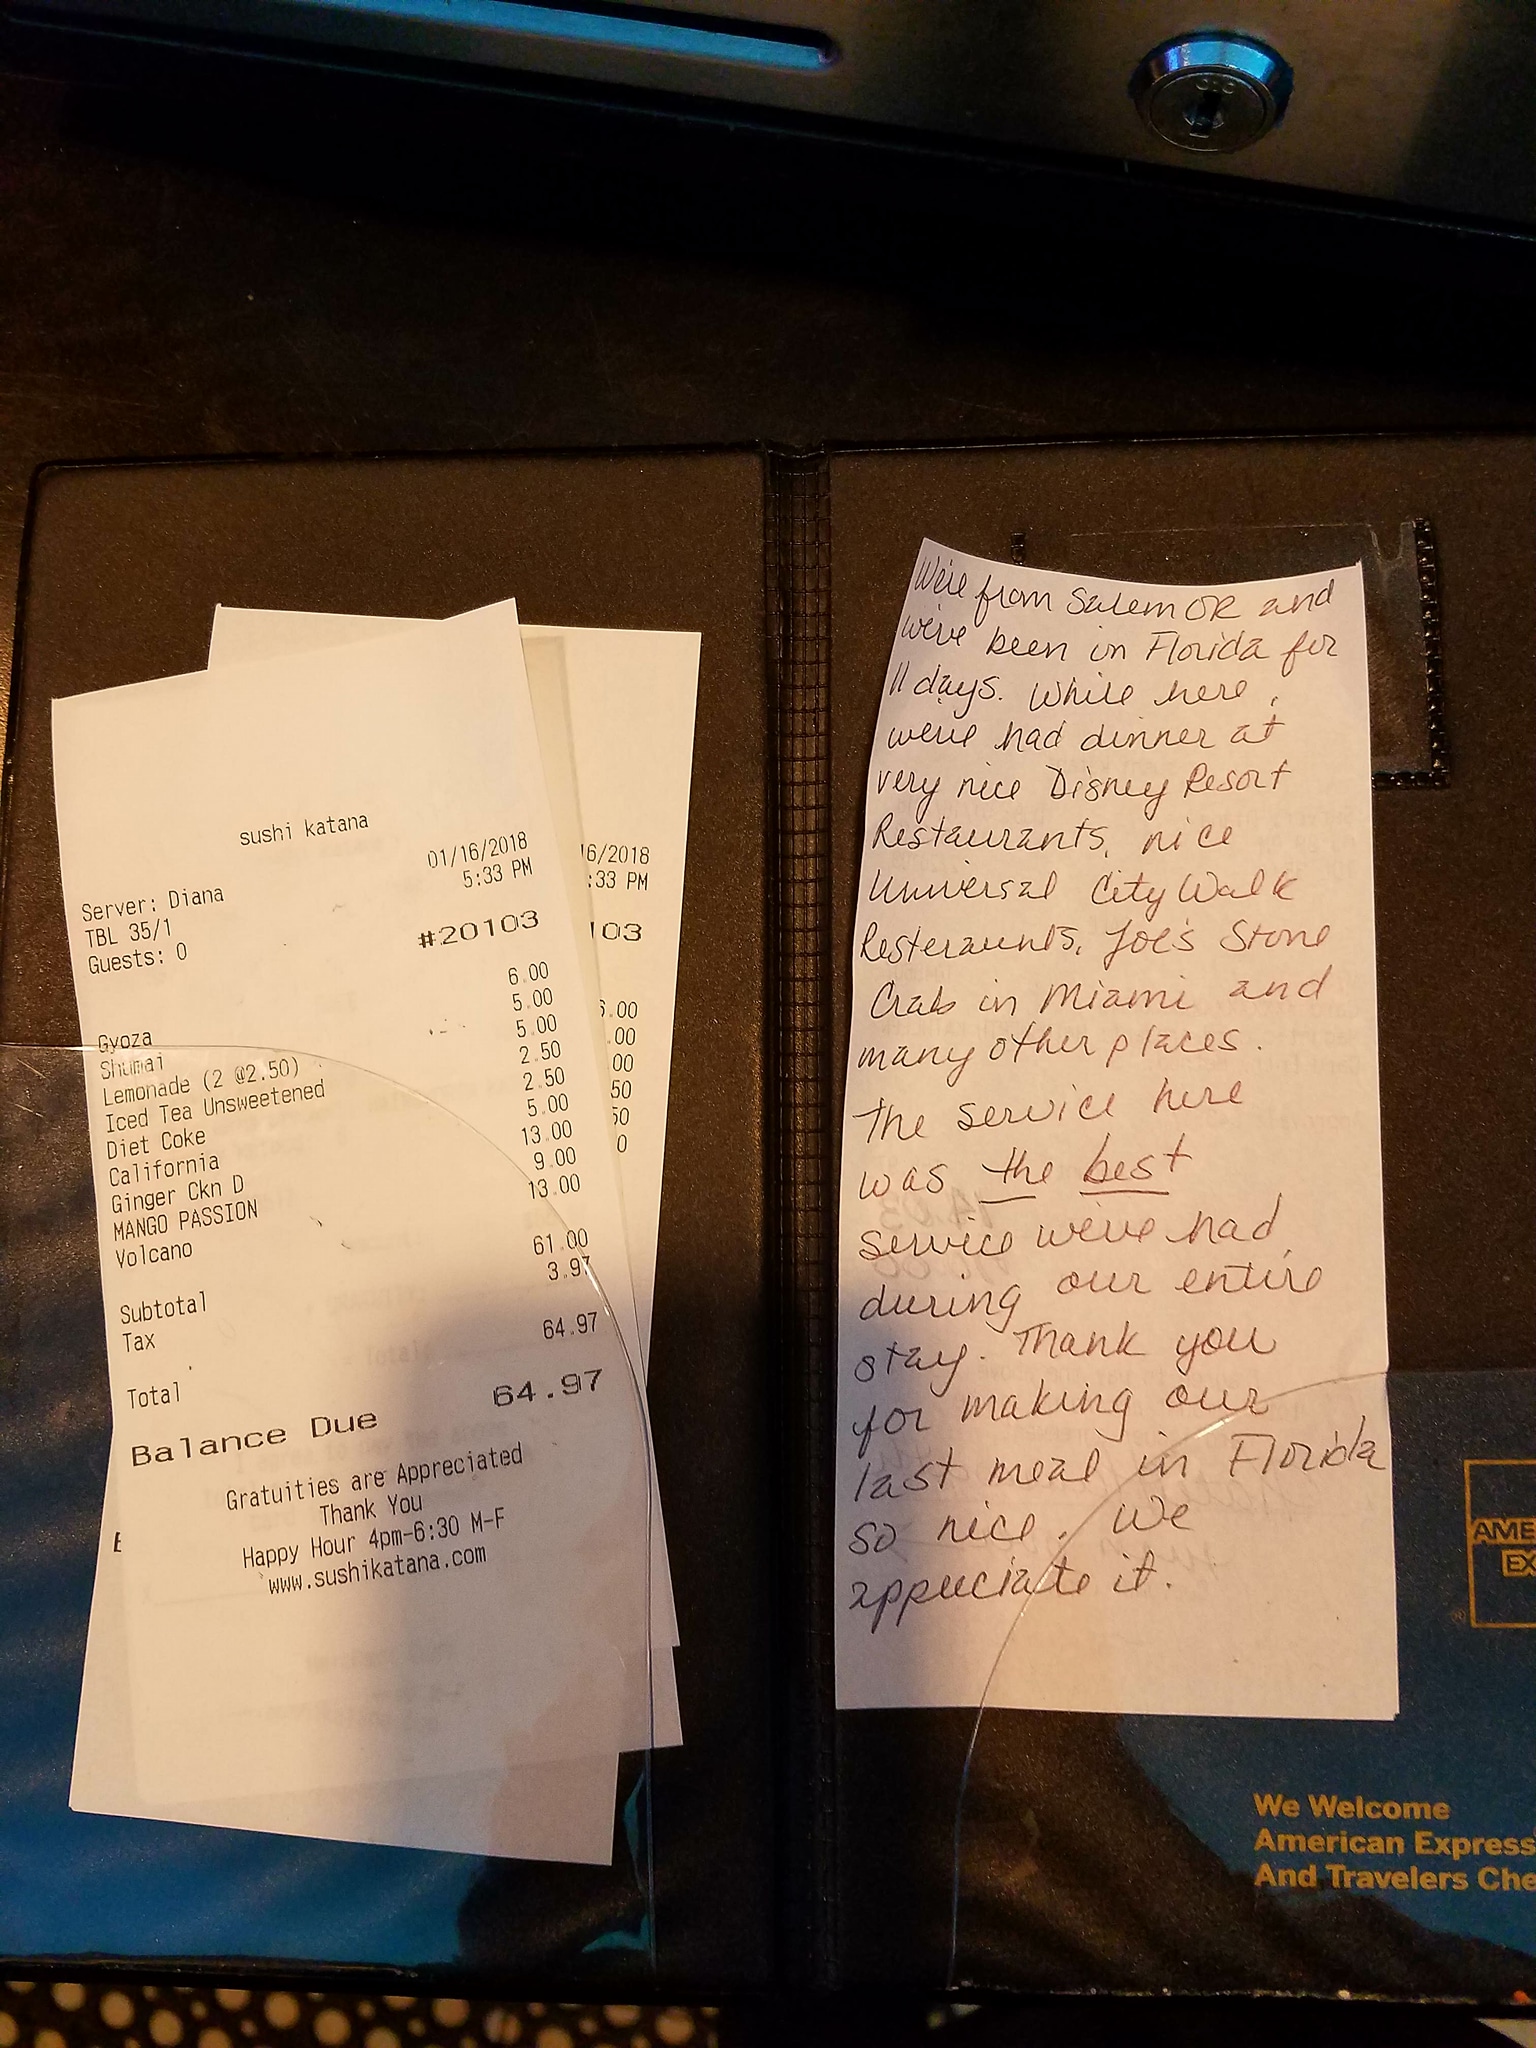 sushi katana
01/16/2018
5:33 PM
Server: Diana
TBL 35/1
Guests: 0
#20103
Gyoza 6.00
Shumai 5.00
Lemonade (2 @2.50) 5.00
Iced Tea Unsweetened 2.50
Diet Coke 2.50
California 5.00
Ginger Ckn D 13.00
MANGO PASSION 9.00
Volcano 13.00
Subtotal 61.00
Tax 3.97
Total 64.97
Balance Due 64.97
Gratuities are Appreciated
Thank You
Happy Hour 4pm-6:30 M-F
www.sushikatana.com
6/2018
:33 PM
103
6.00
.00
.00
50
50
0
We're from Salem OR and
we've been in Florida for
11 days. While here,
we've had dinner at
very nice Disney Resort
Restaurants, nice
Universal City Walk
Resteraunts, Joe's Stone
Crab in Miami and
many other places.
The service here
was the best
service we've had
during our entire
stay. Thank you
for making our
last meal in Florida
so nice. We
appreciate it.
AME
EX
®
We Welcome
American Express
And Travelers Che